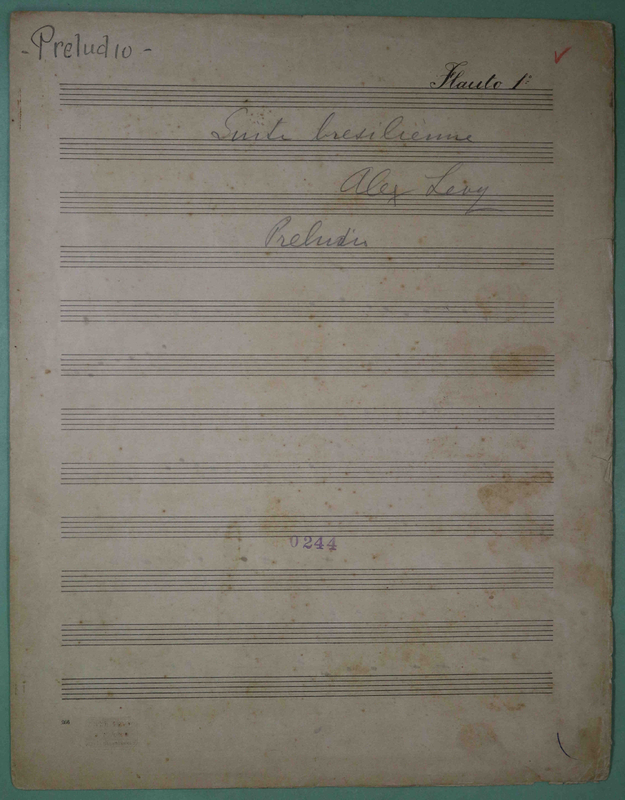 - Preludio -
Flauto 1º
Suite bresilienne
Alex Levy
Preludio
0244